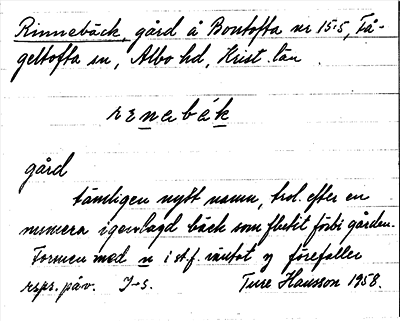 Rinnebäck, gård å Bontofta nr 15:5, Få-
geltofta sn, Albo hd, Krist. län
renabäk
gård
tämligen nytt namn, trol. efter en
numera igenlagd bäck som flutit förbi gården.
Formen med n i st. f. väntat ŋ förefaller
rspr. påv. I-s. Ture Hansson 1958.